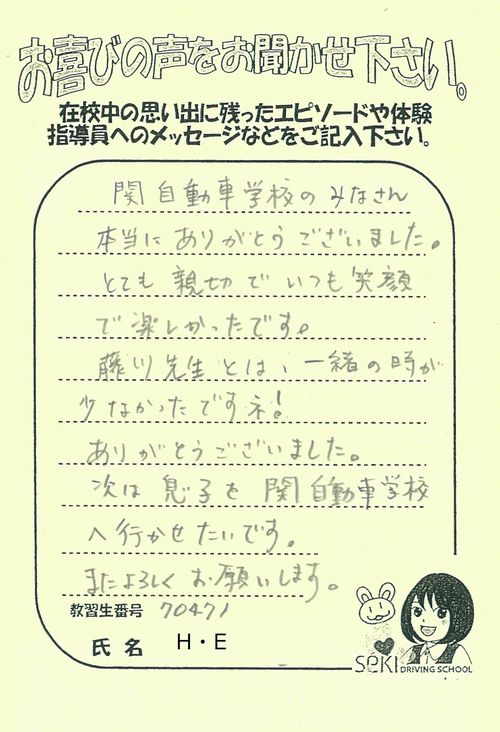 お喜びの声をお聞かせ下さい。
在校中の思い出に残ったエピソードや体験
指導員へのメッセージなどをご記入下さい。
関自動車学校のみなさん
本当にありがとうございました。
とても親切でいつも笑顔
で楽しかったです。
藤川先生とは、一緒の時が
少なかったですネ!
ありがとうございました。
次は息子を関自動車学校
へ行かせたいです。
またよろしくお願いします。
教習生番号 70471
氏名 H・E
SEKI DRIVING SCHOOL